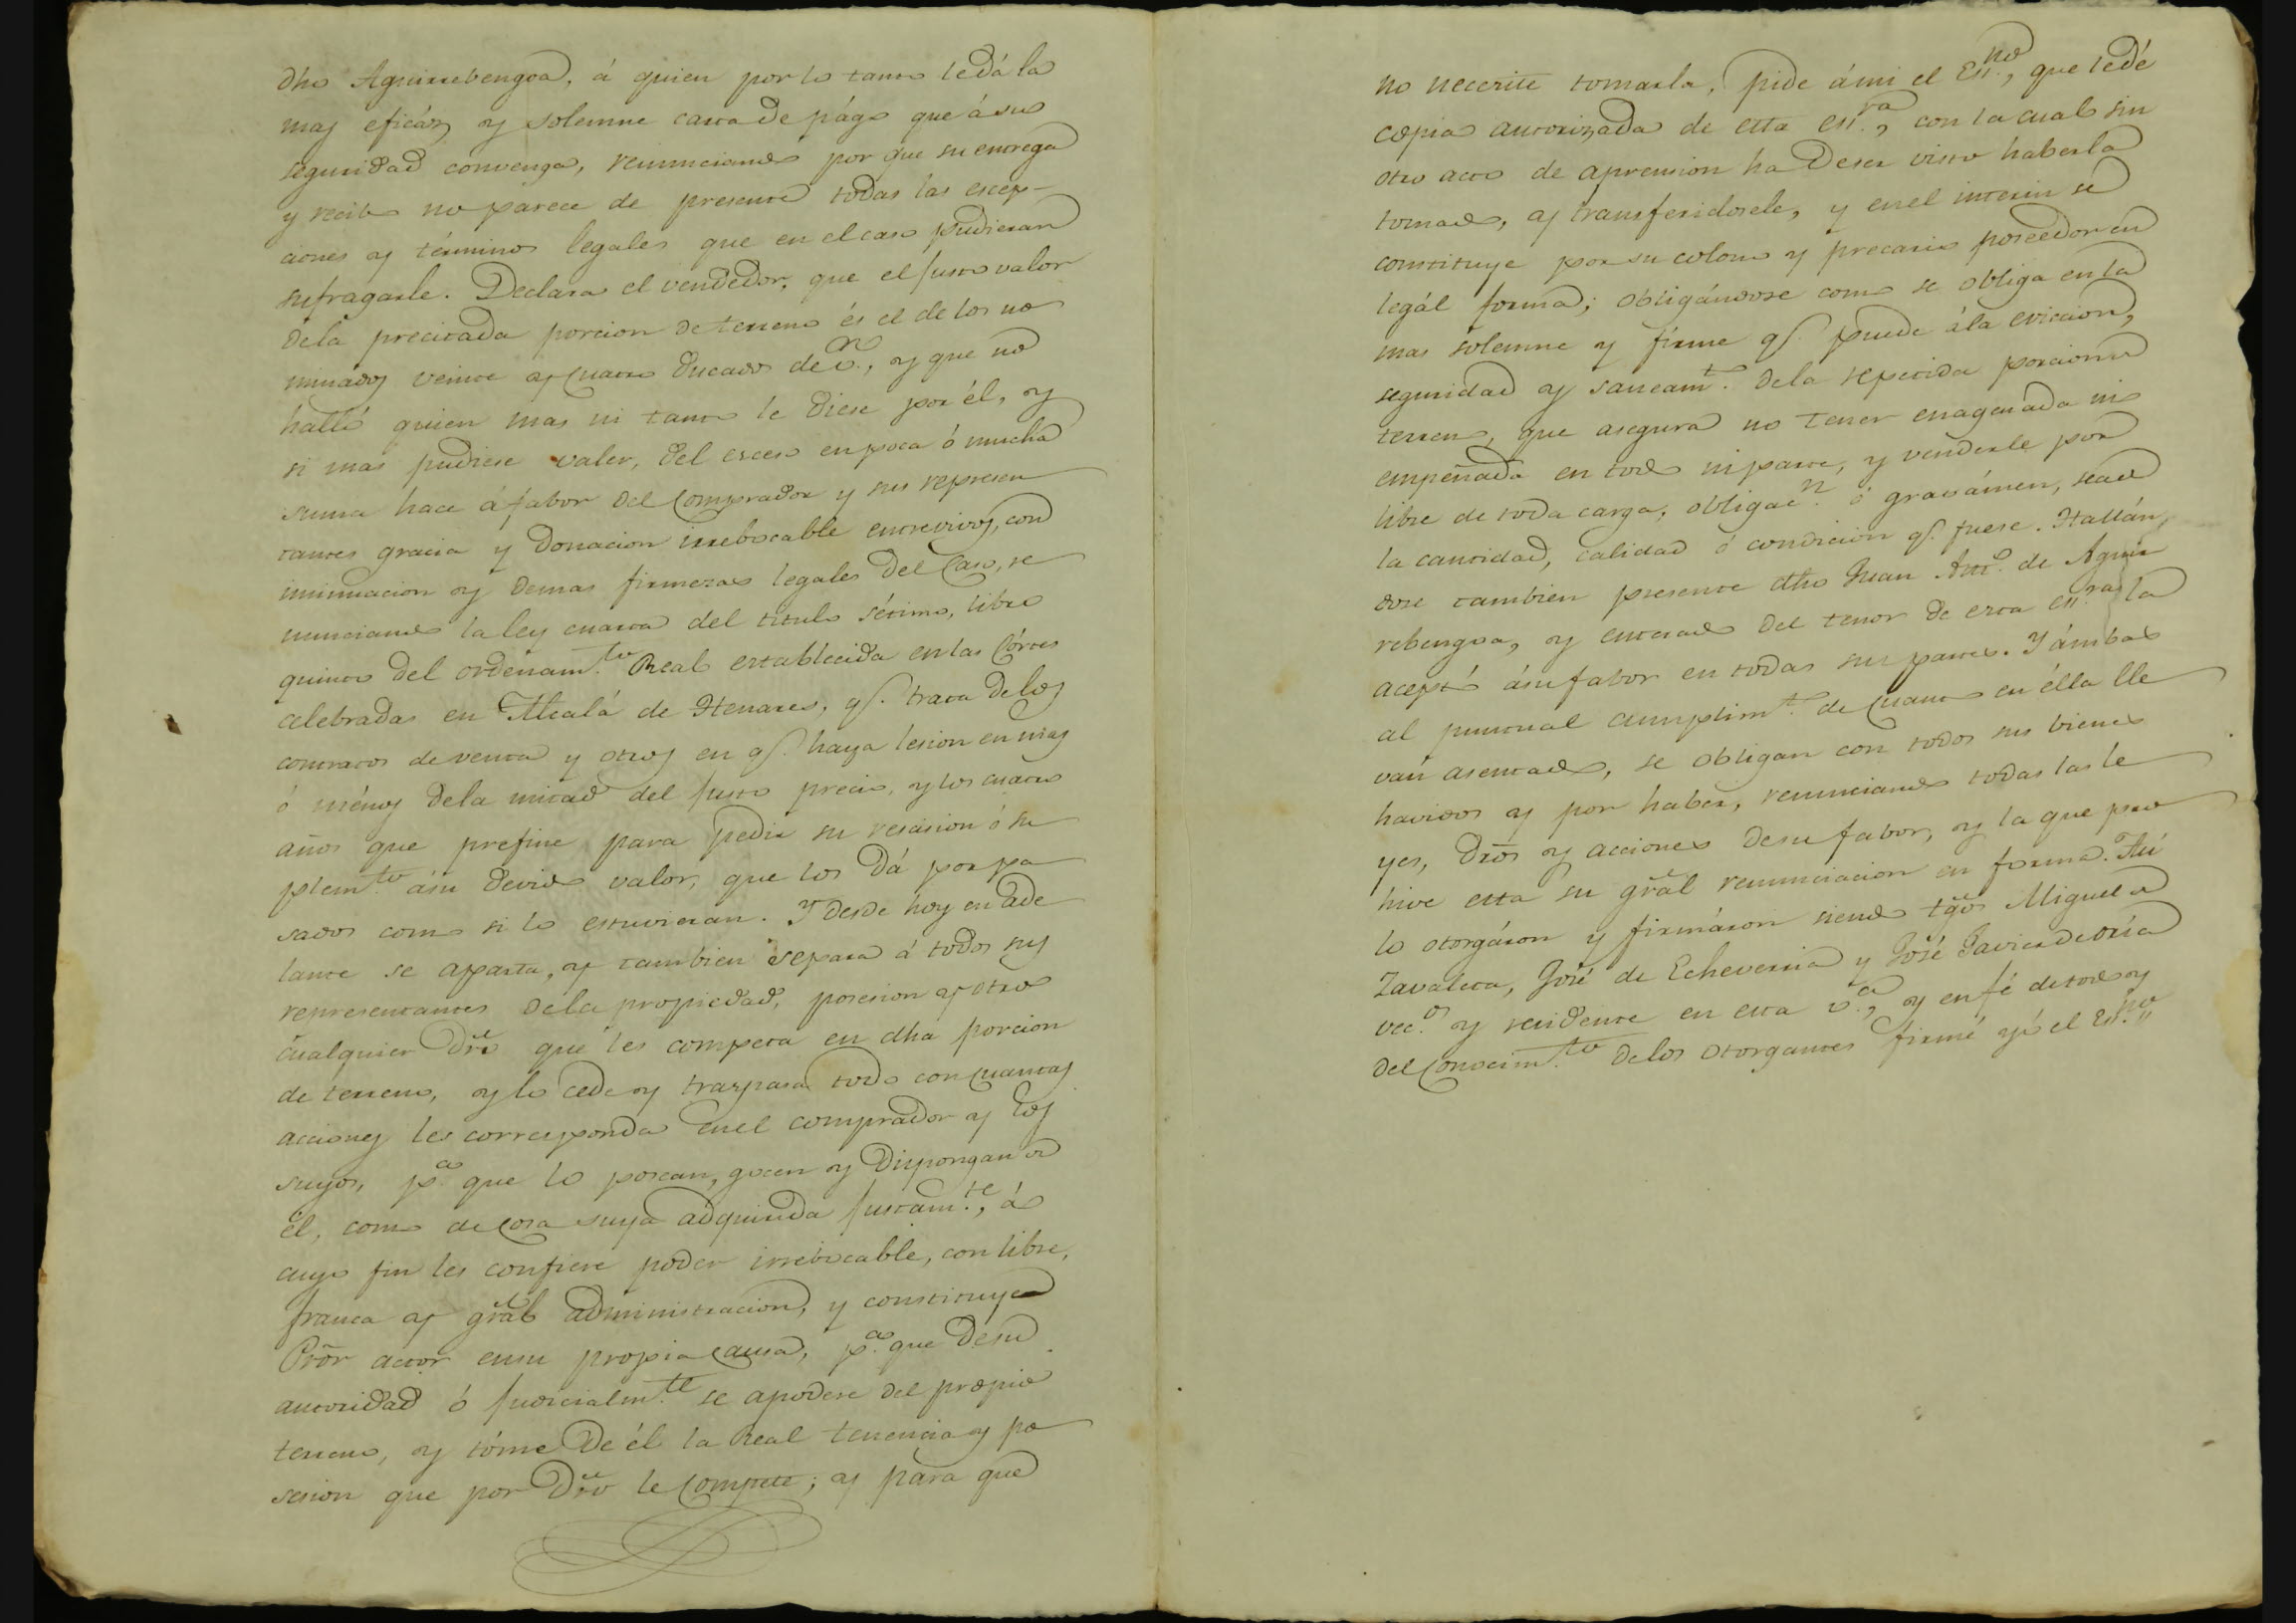 dho Aguirrebengoa, á quien por lo tanto le dá la
mas eficáz y solemne carta de págo que á su
seguridad convenga, renunciando por que su entrega
y recibo no parece de presente todas las escep-
ciones y términos legales que en el caso pudieran
sufragarle. Declara el vendedor, que el justo valor
de la precitada porcion de terreno és el de los no
minados veinte y cuatro ducados de v.n, y que no
halló quien mas ni tanto le diese por él, y
si mas pudiese valer, del esceso en poca ó mucha
suma hace á fabor del comprador y sus represen
tantes gracia y donacion irrebocable entrevivos, con
insinuacion y demas firmezas legales del caso, re
nunciando la ley cuarta del titulo sétimo, libro
quinto del ordenam.to Real establecida en las Córtes
celebradas en Alcalá de Henares, q.e trata de los
contratos de venta y otros en q.e haya lesion en mas
ó ménos de la mitad del justo precio, y los cuatro
años que prefine para pedir su rescision ó su
plem.to á su devido valor, que los dá por pa
sados como si lo estuvieran. Y desde hoy en ade
lante se aparta, y tambien separa á todos sus
representantes de la propiedad, posesion y otro
cualquier dr̃o que les competa en dha porcion
de terreno, y lo cede y traspasa todo con cuantas
acciones les corresponda en el comprador y los
suyos, p.a que lo posean, gocen y dispongan de
él, como de cosa suya adquirida justam.te, á
cuyo fin les confiere poder irrebocable, con libre,
franca y grãl administracion, y constituye
Prõr actor en su propia causa, p.a que de su
autoridad ó judicialm.te se apodere del propio
terreno, y tóme de él la Real tenencia y po
sesion que por dr̃o le compete; y para que
no necesite tomarla, pide á mi el Es.no, que le dé
copia autorizada de esta es.ra, con la cual sin
otro acto de aprension ha de ser visto haberla
tomado, y transferidosele, y en el interin se
constituye por su colono y precario poseedor en
legál forma; obligándose como se obliga en la
mas solemne y firme q.e puede á la eviccion,
seguridad y saneam.to de la repetida porcion de
terreno, que asegura no tener enagenada ni
empeñada en todo ni parte, y venderle por
libre de toda carga, obligac.n ó gravámen, sea de
la cantidad, calidad ó condicion q.e fuese. Hallán
dose tambien presente dho Juan Ant.o de Aguir
rebengoa, y enterado del tenor de esta es.ra, la
aceptó á su fabor en todas sus partes. Y ámbas
al puntual cumplim.to de cuanto en élla lle
van asentado, se obligan con todos sus bienes
havidos y por haber, renunciando todas las le
yes, dr̃os y acciones de su fabor, y la que pro
hive esta su grãl renunciacion en forma. Asi
lo otorgáron y firmáron siendo tgõs Miguel de
Zavaleta, José de Echeverria y José Javier de Oria
vec.s y residente en esta v.a, y en fé de todo y
del conocim.to de los otorgantes firmé yó el Es.no